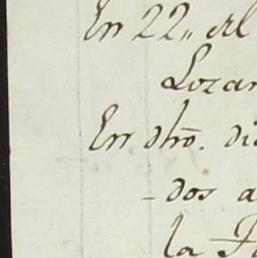 En 22,, del
Lozan
En dhõ. dia
-dos a
la Fa